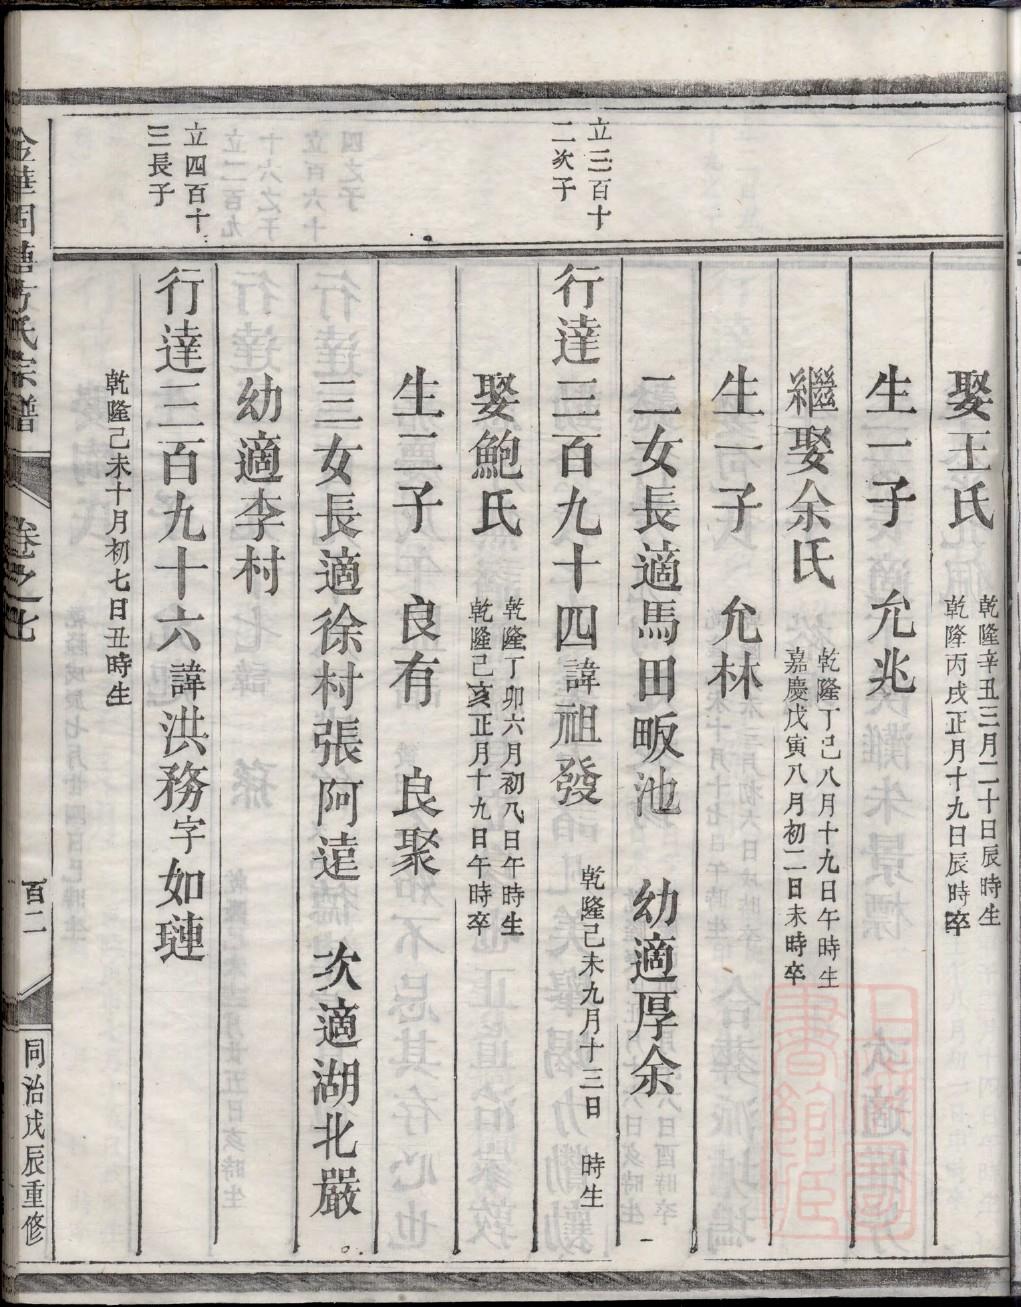 娶王氏
乾隆辛丑三月二十日辰時生
乾隆丙戌正月十九日辰時卒
生一子　允兆
繼娶余氏
乾隆丁己八月十九日午時生
嘉慶戊寅八月初二日未時卒
生一子　允林
二女長適馬田畈池　幼適厚余
立三百十
二次子
行達三百九十四諱祖發
乾隆己未九月十三日　時生
娶鮑氏
乾隆丁卯六月初八日午時生
乾隆己亥正月十九日午時卒
生二子　良有　良聚
三女長適徐村張阿達　次適湖北嚴
幼適李村
立四百十
三長子
行達三百九十六諱洪務字如璉
乾隆己未十月初七日丑時生
金華洞溪方氏宗譜
卷之七
百二
同治戊辰重修